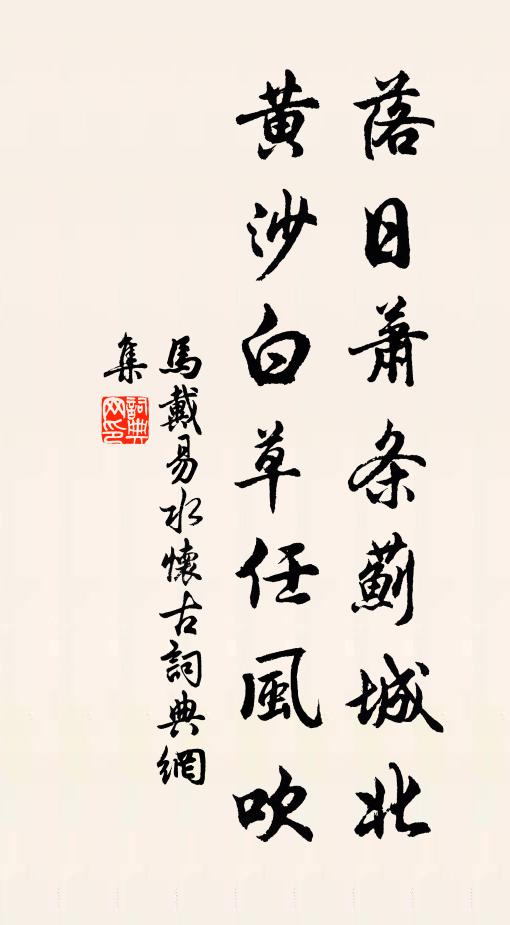 落日萧条薊城北
黄沙白草任風吹
馬戴易水懷古詞典網
集
詞典
网印